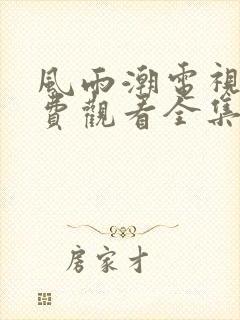 風雨潮電視
費觀看全集
房家才